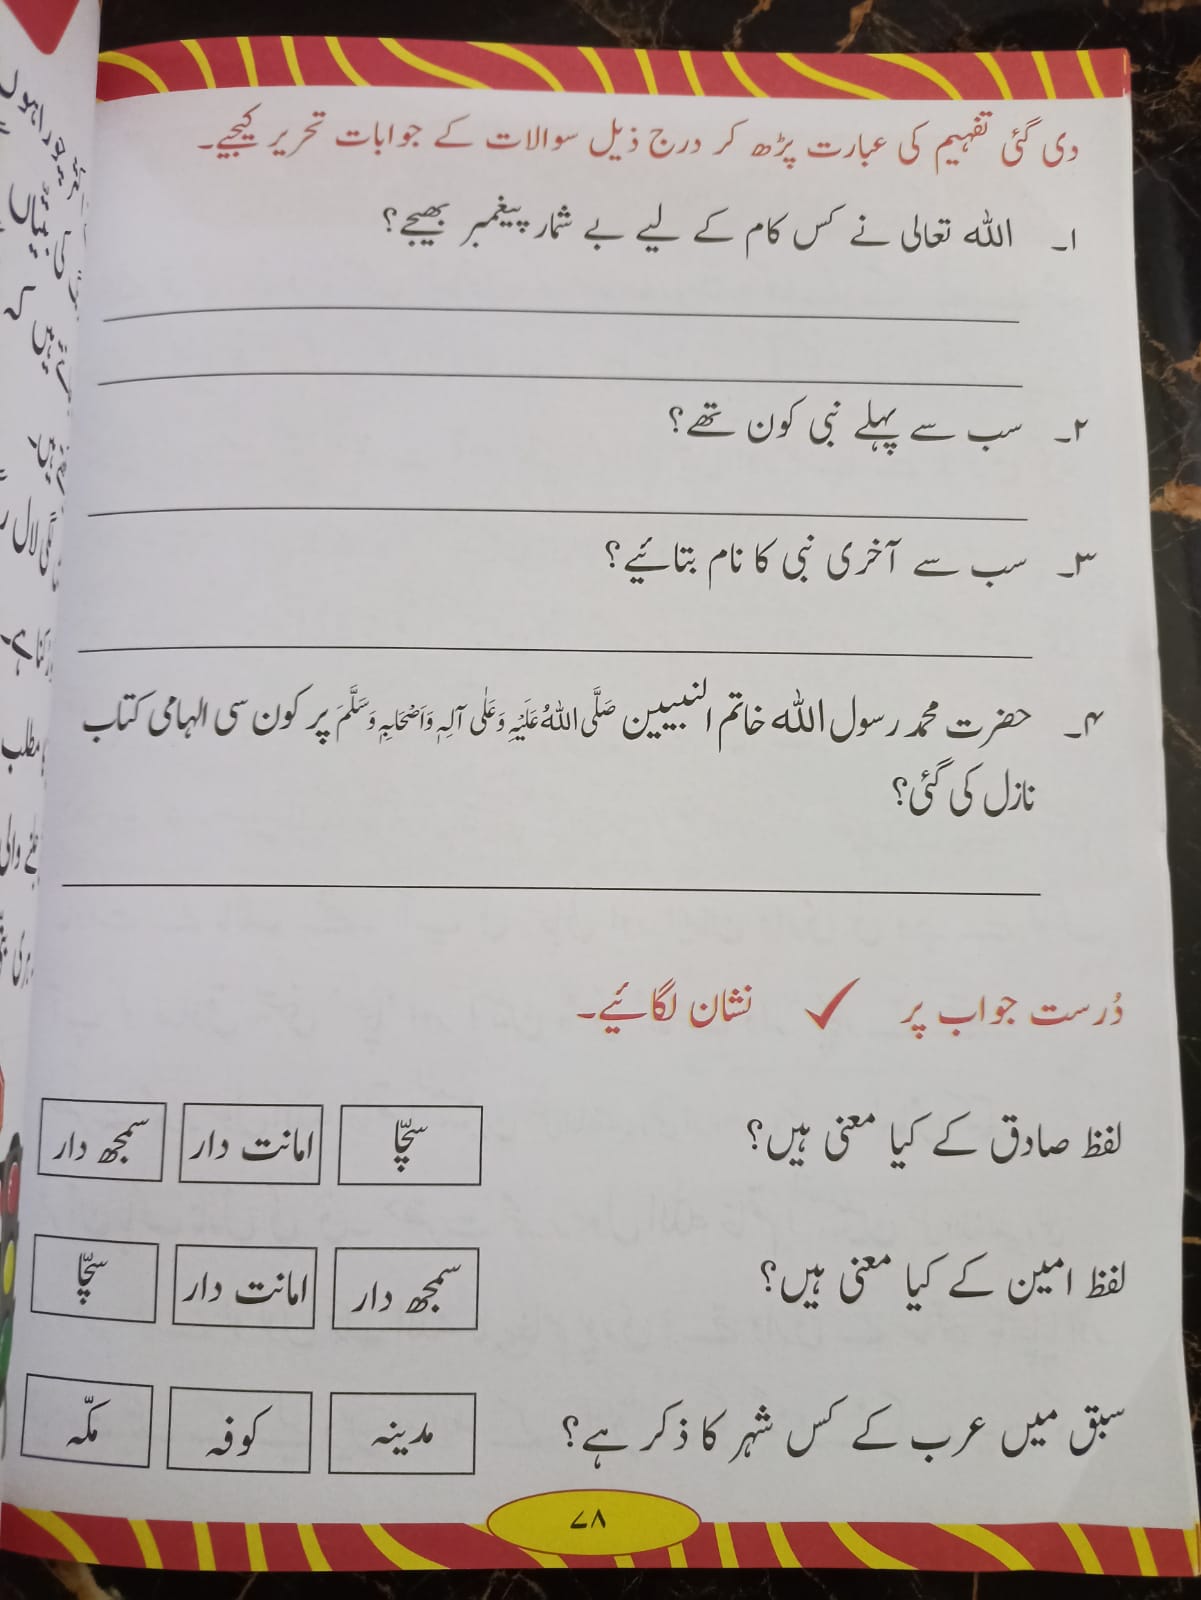 دی گئی تفہیم کی عبارت پڑھ کر درج ذیل سوالات کے جوابات تحریر کیجیے۔
۱۔ اللہ تعالی نے کس کام کے لیے بے شمار پیغمبر بھیجے؟
۲۔ سب سے پہلے نبی کون تھے؟
۳۔ سب سے آخری نبی کا نام بتائیے؟
۴۔ حضرت محمد رسول اللہ خاتم النبیین صَلَّی اللہُ عَلَیْہِ وَعَلٰی آلِہٖ وَاَصْحَابِہٖ وَسَلَّمَ پر کون سی الہامی کتاب
نازل کی گئی؟
دُرست جواب پر ✓ نشان لگائیے۔
لفظ صادق کے کیا معنی ہیں؟ سچّا امانت دار سمجھ دار
لفظ امین کے کیا معنی ہیں؟ سمجھ دار امانت دار سچّا
سبق میں عرب کے کس شہر کا ذکر ہے؟ مدینہ کوفہ مکّہ
۷۸